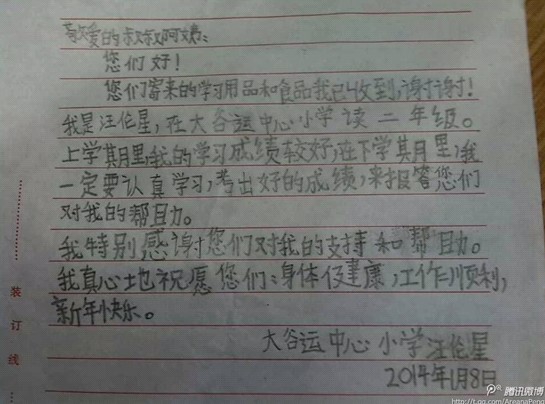 敬爱的叔叔阿姨：
您们好！
您们寄来的学习用品和食品我已收到，谢谢！
我是汪伦星，在大谷运中心小学读二年级。
上学期里，我的学习成绩较好，在下学期里，我
一定要认真学习，考出好的成绩，来报答您们
对我的帮助。
我特别感谢您们对我的支持和帮助。
我真心地祝愿您们：身体健康，工作顺利，
新年快乐。
大谷运中心小学汪伦星
2014年1月8日
装订线
腾讯微博
http://t.qq.com/AreanaPeng